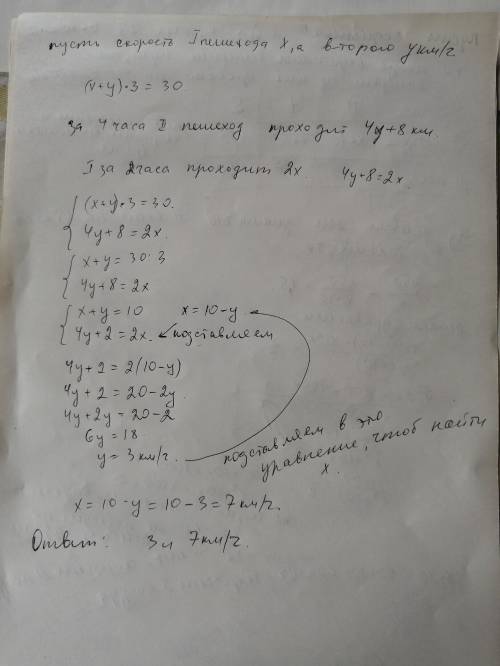 пусть скорость I пешехода x, а второго y км/ч
(x+y)·3 = 30
за 4 часа II пешеход проходит 4y+8 км.
I за 2 часа проходит 2x. 4y+8=2x
{ (x+y)·3=30.
4y+8=2x.
{ x+y=30:3
4y+8=2x
{ x+y=10 x=10-y
4y+2=2x. подставляем
4y+2=2(10-y)
4y+2=20-2y
4y+2y=20-2
6y=18
y=3 км/ч.
подставляем в это
уравнение, чтоб найти
x.
x=10-y=10-3=7км/ч.
Ответ: 3 и 7км/ч.